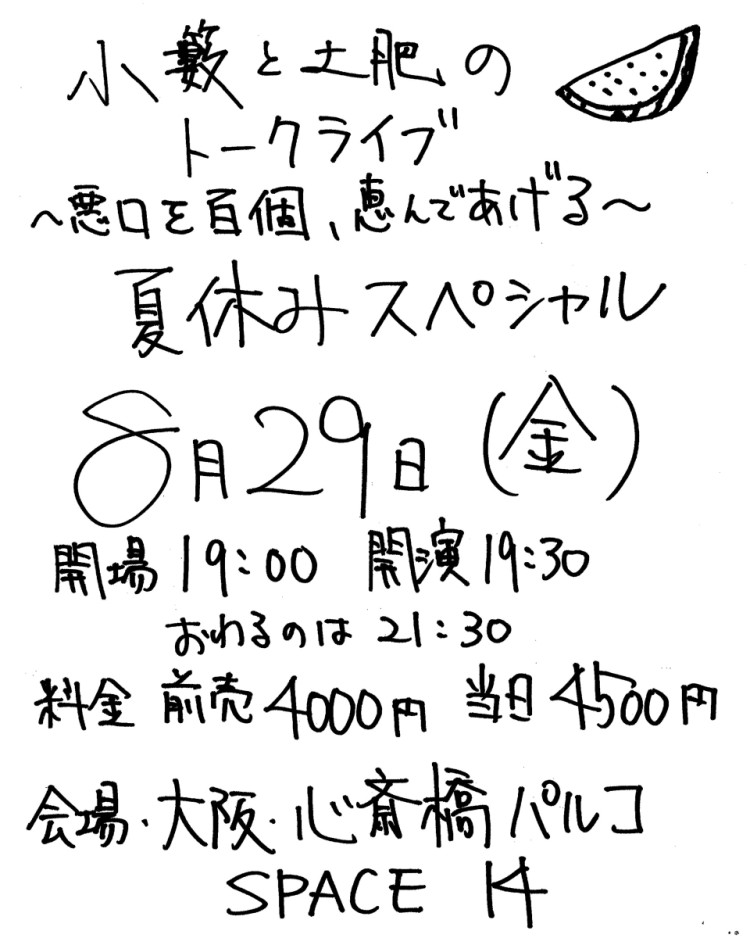 小籔と土肥の
トークライブ
～悪口を百個、恵んであげる～
夏休みスペシャル
8月29日(金)
開場 19:00 開演 19:30
おわるのは 21:30
料金 前売 4000円 当日 4500円
会場・大阪・心斎橋パルコ
SPACE 14